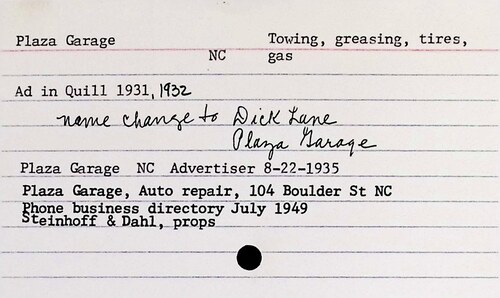 Plaza Garage Towing, greasing, tires,
NC gas
Ad in Quill 1931, 1932
name change to Dick Lane
Plaza Garage
Plaza Garage NC Advertiser 8-22-1935
Plaza Garage, Auto repair, 104 Boulder St NC
Phone business directory July 1949
Steinhoff & Dahl, props